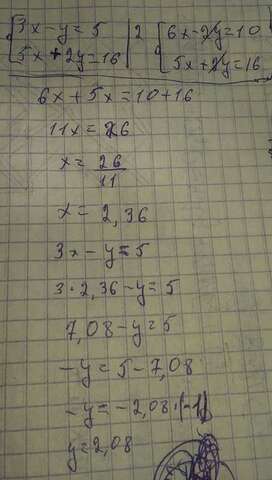 {3x - y = 5 | 2 {6x - 2y = 10
{5x + 2y = 16 | {5x + 2y = 16
6x + 5x = 10 + 16
11x = 26
x = 26/11
x = 2,36
3x - y = 5
3 · 2,36 - y = 5
7,08 - y = 5
-y = 5 - 7,08
-y = -2,08 · (-1)
y = 2,08